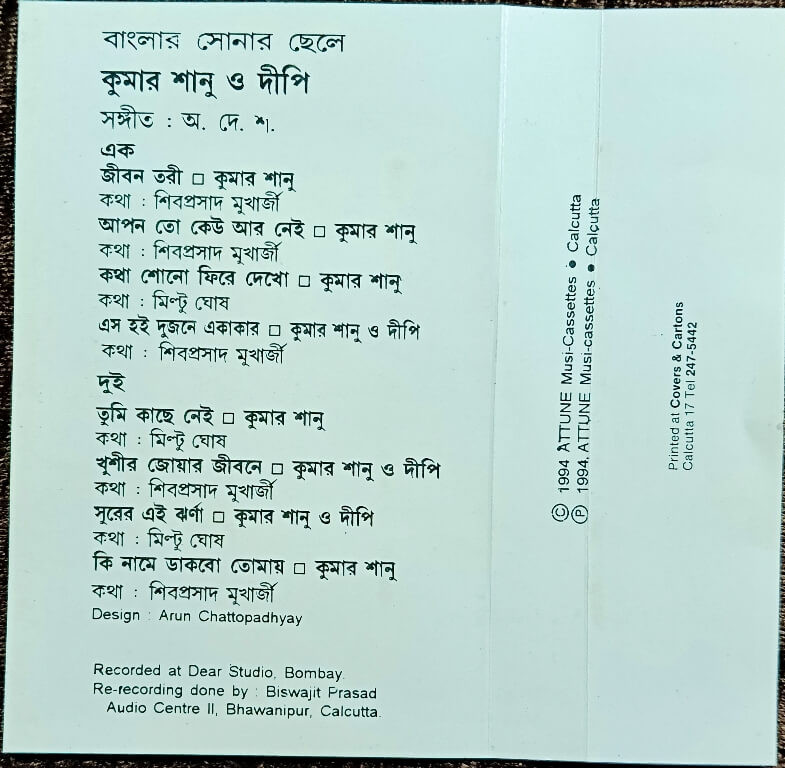 বাংলার সোনার ছেলে
কুমার শানু ও দীপি
সঙ্গীত : অ. দে. শ.
এক
জীবন তরী □ কুমার শানু
কথা : শিবপ্রসাদ মুখার্জী
আপন তো কেউ আর নেই □ কুমার শানু
কথা : শিবপ্রসাদ মুখার্জী
কথা শোনো ফিরে দেখো □ কুমার শানু
কথা : মিন্টু ঘোষ
এস হই দুজনে একাকার □ কুমার শানু ও দীপি
কথা : শিবপ্রসাদ মুখার্জী
দুই
তুমি কাছে নেই □ কুমার শানু
কথা : মিন্টু ঘোষ
খুশীর জোয়ার জীবনে □ কুমার শানু ও দীপি
কথা : শিবপ্রসাদ মুখার্জী
সুরের এই ঝর্ণা □ কুমার শানু ও দীপি
কথা : মিন্টু ঘোষ
কি নামে ডাকবো তোমায় □ কুমার শানু
কথা : শিবপ্রসাদ মুখার্জী
Design : Arun Chattopadhyay
Recorded at Dear Studio, Bombay.
Re-recording done by : Biswajit Prasad
Audio Centre II, Bhawanipur, Calcutta.
© 1994 ATTUNE Musi-Cassettes ● Calcutta
℗ 1994. ATTUNE Musi-cassettes ● Calcutta
Printed at Covers & Cartons
Calcutta 17 Tel 247-5442